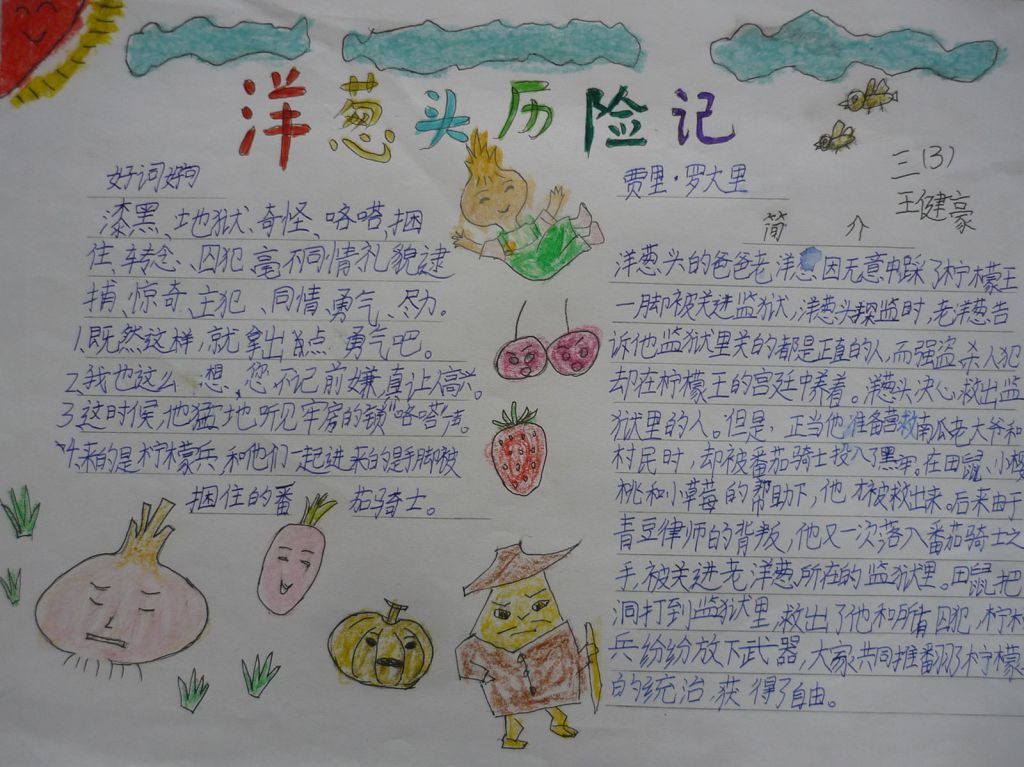 洋葱头历险记
好词好句
漆黑、地狱、奇怪、咯嗒、捆
住、转念、囚犯、毫不同情礼貌逮
捕、惊奇、主犯、同情、勇气、尽力。
1.既然这样，就拿出点勇气吧。
2.我也这么想，您不记前嫌，真让人高兴。
3.这时候，他猛地听见牢房的锁“咯嗒”声。
4.来的是柠檬兵，和他们一起进来的是手脚被
捆住的番茄骑士。
贾里·罗大里
三(3)
王健豪
简介
洋葱头的爸爸老洋葱因无意中踩了柠檬王
一脚被关进监狱，洋葱头探监时，老洋葱告
诉他监狱里关的都是正直的人，而强盗、杀人犯
却在柠檬王的宫廷中养着。洋葱头决心救出监
狱里的人。但是，正当他准备营救南瓜老大爷和
村民时，却被番茄骑士投入了黑牢。在田鼠、小樱
桃和小草莓的帮助下，他才被救出来。后来由于
青豆律师的背叛，他又一次落入番茄骑士之
手，被关进老洋葱所在的监狱里。田鼠把
洞打到监狱里，救出了他和所有囚犯，柠檬
兵纷纷放下武器，大家共同推翻了柠檬
的统治，获得了自由。